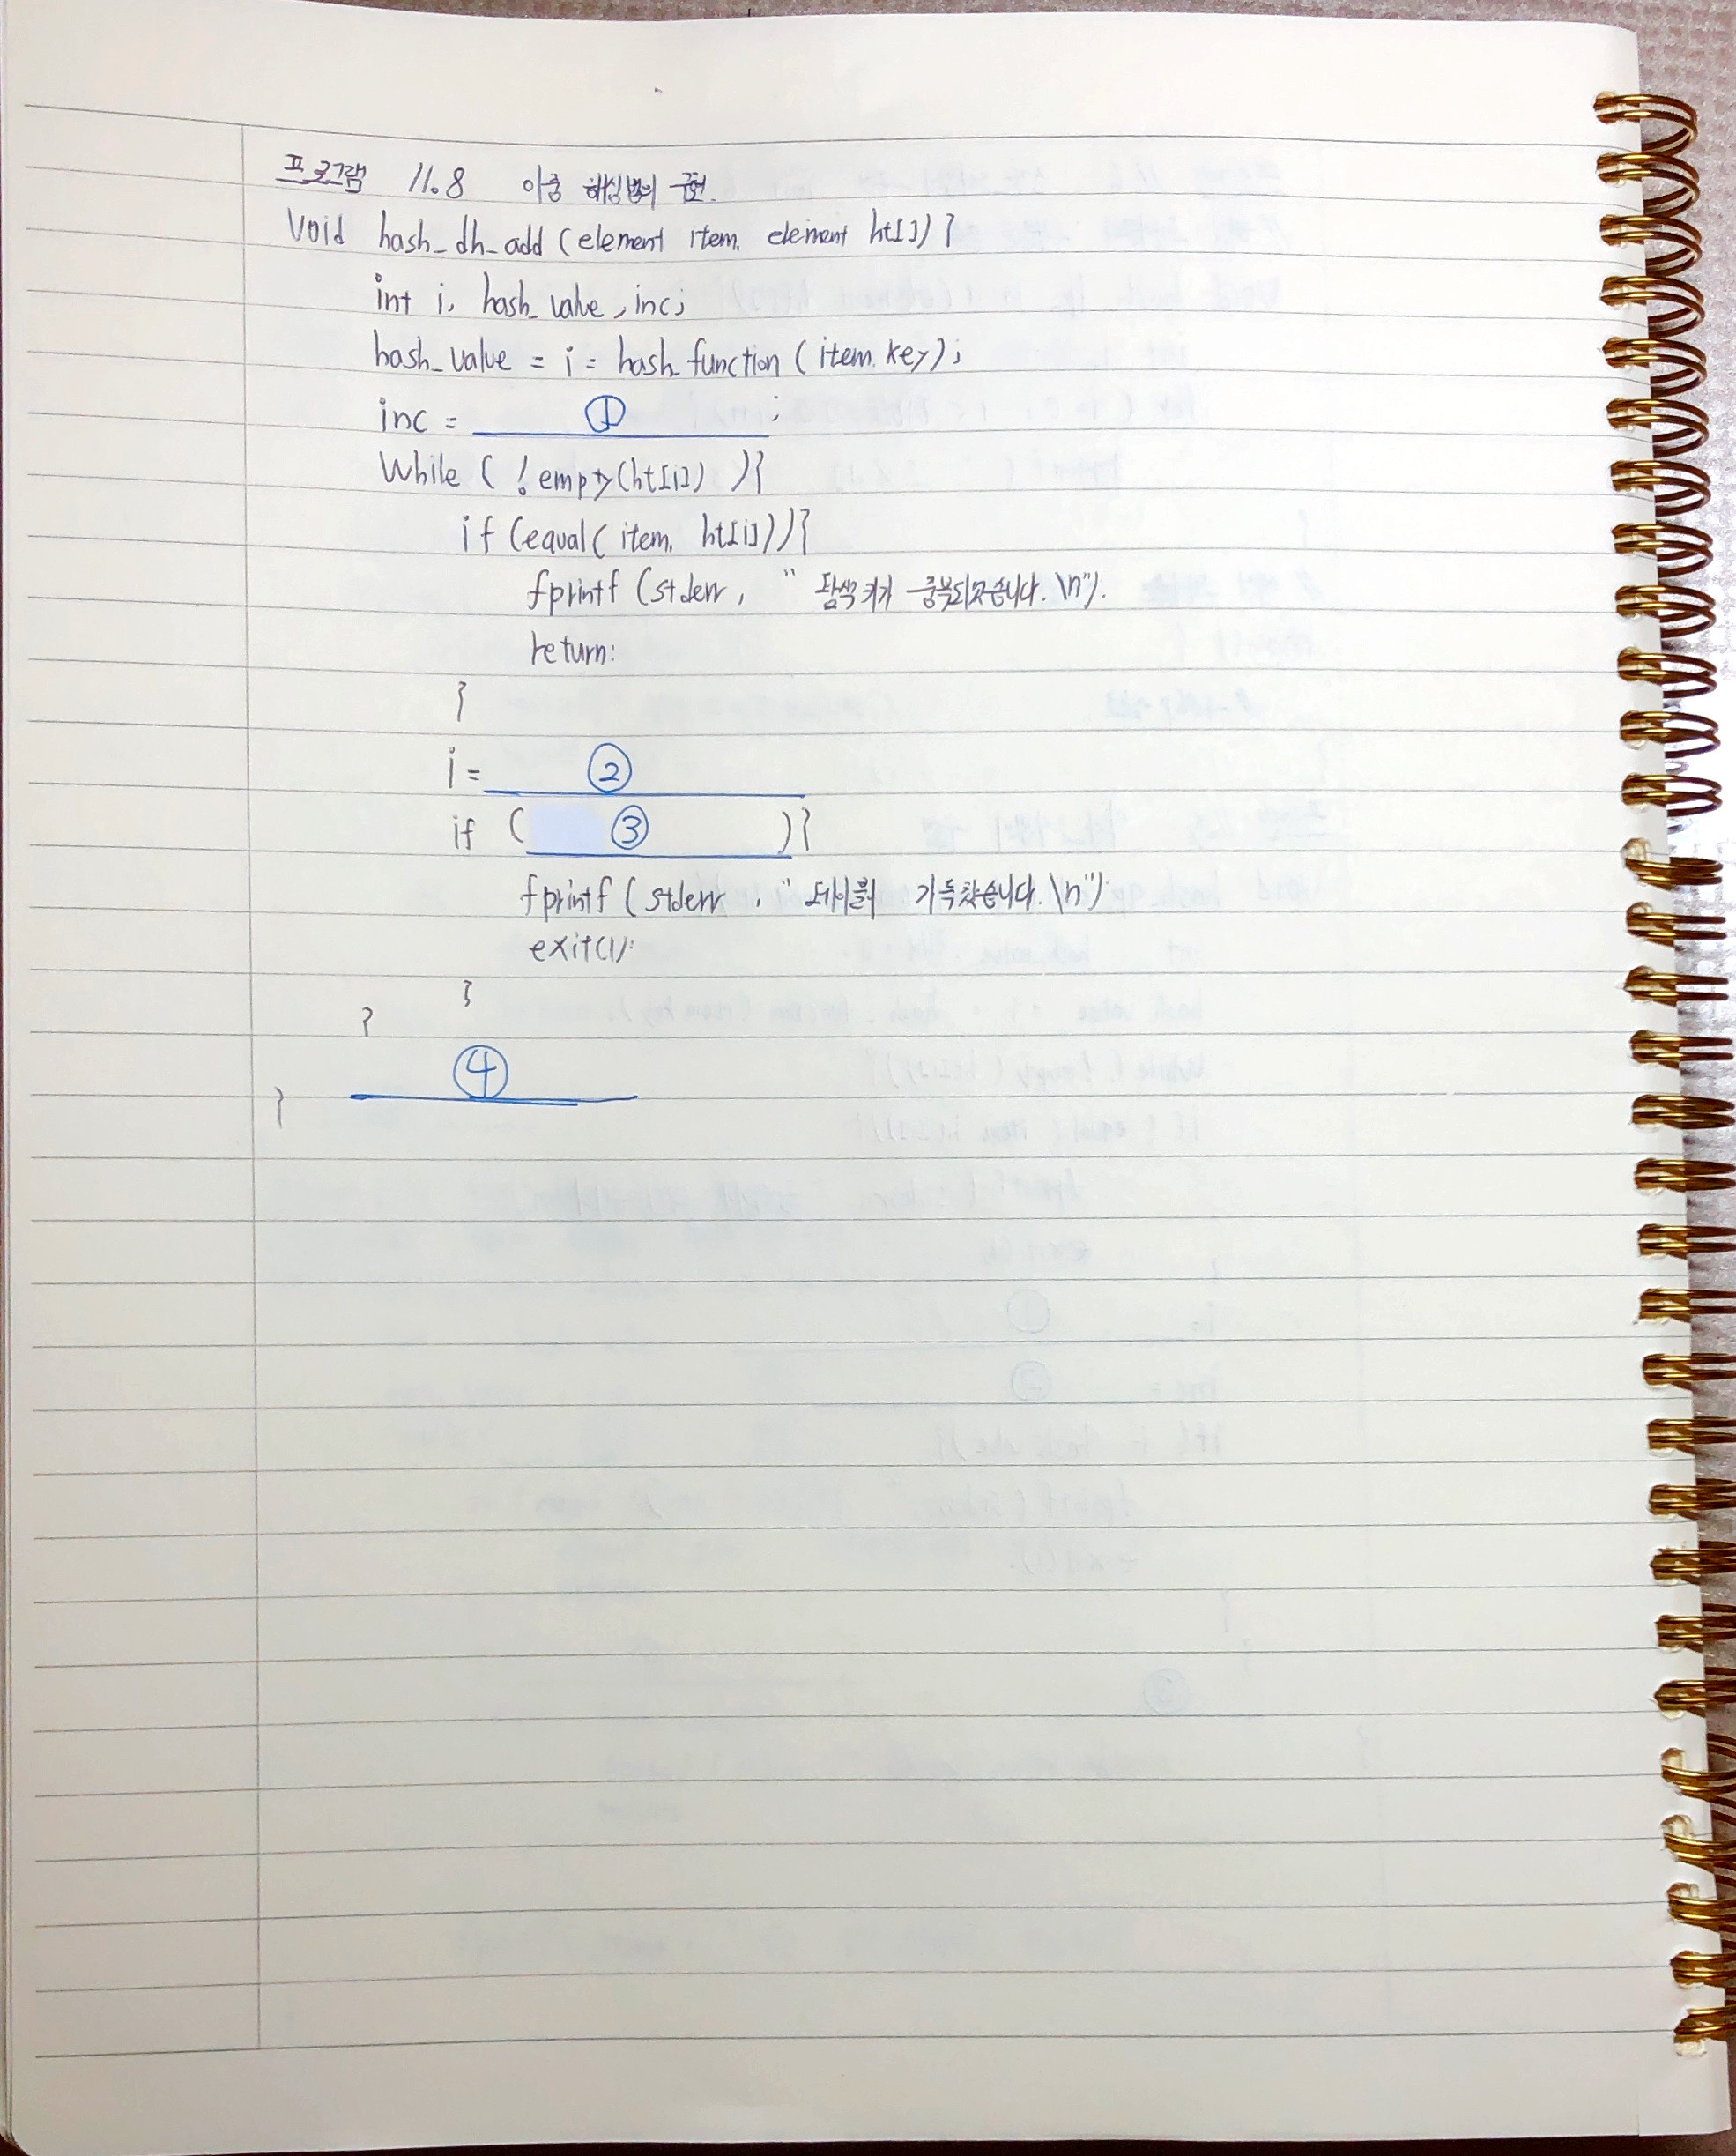 프로그램 11.8 이중 해싱법의 구현.
Void hash_dh_add (element item, element ht[]) {
int i, hash_value, inc;
hash_value = i = hash_function (item.key);
inc = ① ;
While ( ! empty(ht[i]) ){
if (equal( item, ht[i])){
fprintf (stderr, " 탐색키가 중복되었습니다. \n").
return:
}
i = ②
if ( ③ ){
fprintf ( stderr, " 테이블이 가득찼습니다. \n"):
exit(1):
}
}
④
}